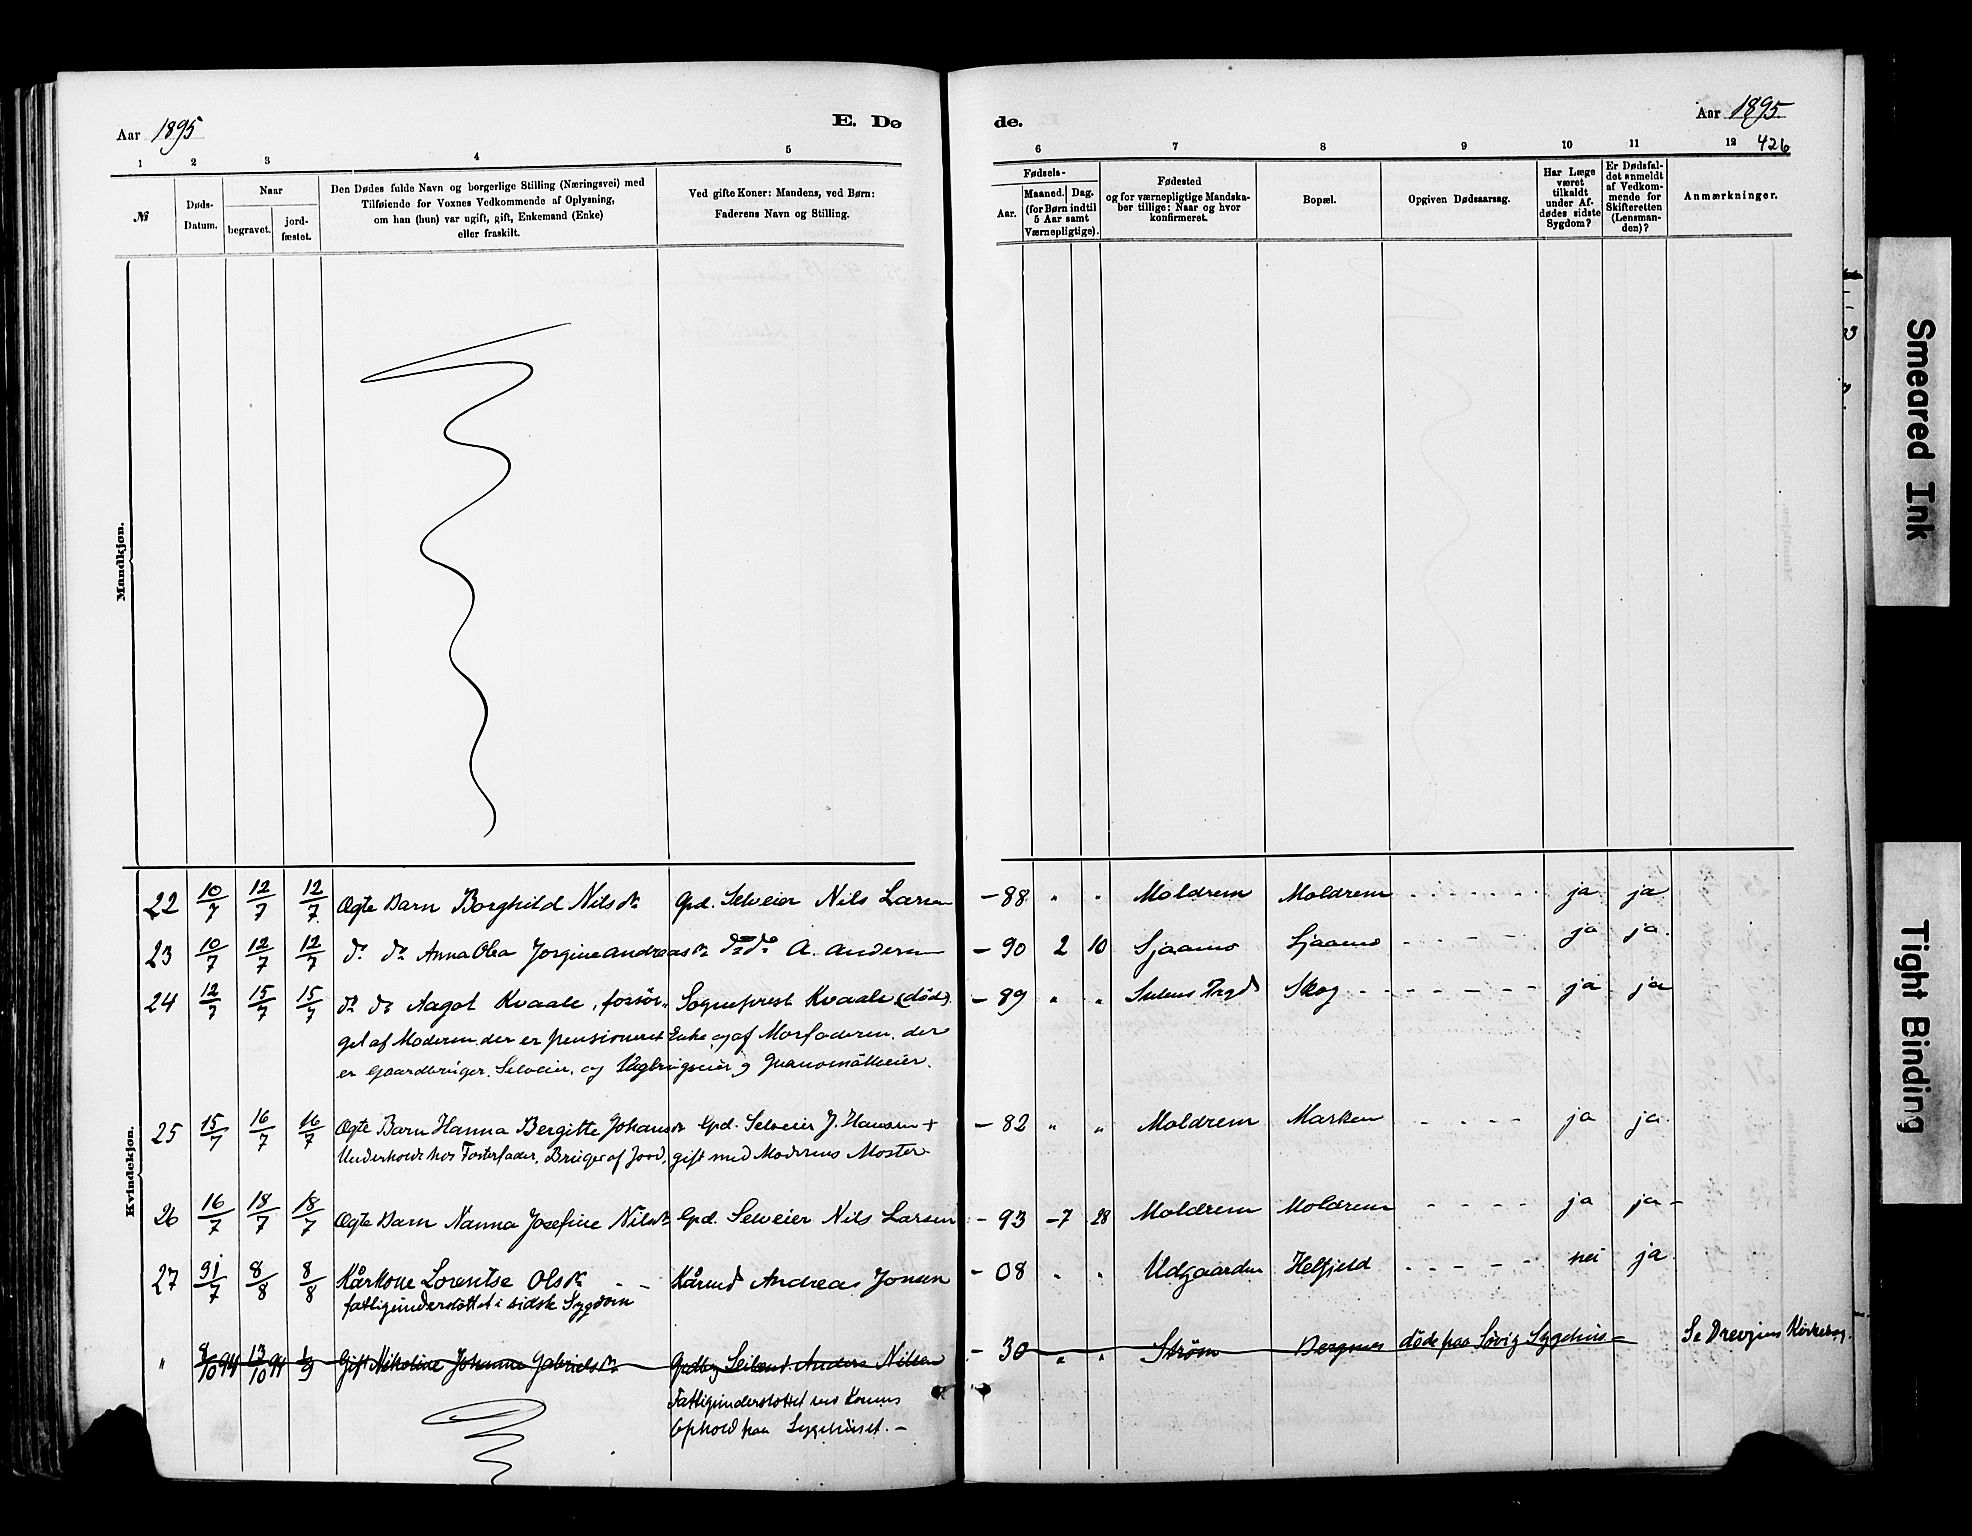 Aar 1895
E. Dø
de.
Aar 1895
426
1 2 3 4 5 6 7 8 9 10 11 12
№
Døds-Datum.
Naar
begravet.
jord-fæstet.
Den Dødes fulde Navn og borgerlige Stilling (Næringsvei) med
Tilføiende for Voxnes Vedkommende af Oplysning,
om han (hun) var ugift, gift, Enkemand (Enke)
eller fraskilt.
Ved gifte Koner: Mandens, ved Børn:
Faderens Navn og Stilling.
Fødsels-
Aar.
Maaned. Dag.
(for Børn indtil
5 Aar samt
Værnepligtige).
Fødested
og for værnepligtige Mandska-
ber tillige: Naar og hvor
konfirmeret.
Bopæl.
Opgiven Dødsaarsag.
Har Læge
været
tilkaldt
under Af-
dødes sidste
Sygdom?
Er Dødsfal-
det anmeldt
af Vedkom-
mende for
Skifteretten
(Lensman-
den)?
Anmærkninger.
Mandkjøn.
Kvindekjøn.
22 10/7 12/7 12/7 Ægte Barn Borghild Nilsdr. Gpd. Selveier Nils Larsen - 88 " " Moldrem Moldrem ja ja
23 10/7 12/7 12/7 do do Anna Olea Jorgine Andreasdr. do do A. Andersen - 90 2 10 Sjaamo Sjaamo ja ja
24 12/7 15/7 15/7 do do Aagot Kvaale, forsör- Sogneprest Kvaale (död) - 89 " " Skog ja ja
get af Moderen, der er pensioneret Enke og af Morfaderen, der
er Gaardbruger, Selveier, og
25 15/7 16/7 16/7 Ægte Barn Hanna Bergitte Johansdr. Gpd. Selveier J. Hansen + - 82 " " Moldrem Marken ja ja
Underholdt hos Fosterfader, Bruger af Jord, gift med Moderens Moster
26 16/7 18/7 18/7 Ægte Barn Nanna Josefine Nilsdr. Gpd. Selveier Nils Larsen - 93 - 7 28 Moldrem Moldrem ja ja -
27 31/7 8/8 8/8 Kårkone Lorentse Olsdr. - - Kårmd Andreas Jonsen - 08 " " Udgaarden Helfjeld nei ja
fattigunderstöttet i sidste Sygdom
" 9/10 94 13/10 94 Gift Nikoline Johanna Gabrielsdr. Anders Nilsen - 30 " " Strøm Bergsnes döde paa Søvig Sygehus - Se Drevjens Kirkebog.
Fattigunderstöttet ved Konens
Ophold paa Sygehuset. -
Smeared Ink
Tight Binding